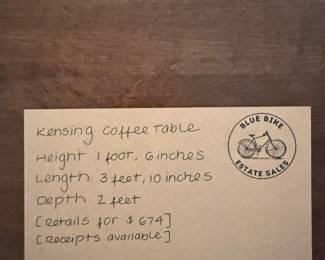 Kensing Coffee Table
Height 1 foot, 6 inches
Length 3 feet, 10 inches
Depth 2 feet
[Retails for $674]
[Receipts available]
BLUE BIKE
ESTATE SALES